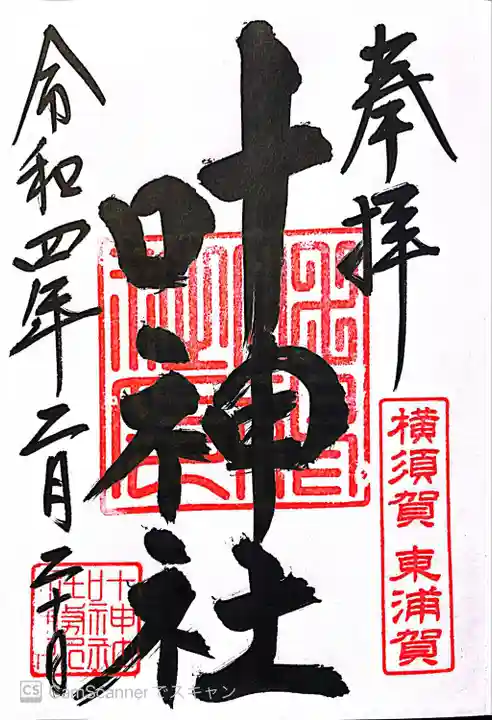 奉拝
横須賀 東浦賀
叶神社
令和四年二月二十日
CS CamScanner でスキャン